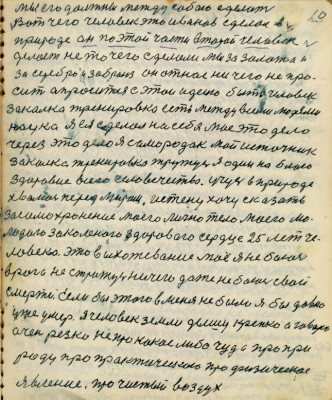 мы его должны между собою сделат
Вот чего человек это иванов сделал в
природе он по этой части второй человек
делает не то чего сделали мы за залата и
за серебро забрали он отнас ни чего не про-
сит а просится с этой идеею быть человек
закалка тренировка есть между всеми людями
наука Я ея сделал на себя Мае это дело
через это дело Я самородак мой источник
закалка тренировка тружусь Я один на благо
здоровие всего человечества. учусь в природе
хвалюсь перед миром, истену хочу сказать
за само хронение моего личного тело моего мо-
лодого закаленого здорового сердце 25 лет че-
ловека. Это вихотевание мая Я не боюсь
врага не стражусь ничего даже не боюс свой
смерти. Если бы этого вменя не было Я бы давно
уже умер. Я человек земли дышу крепко а говорю
очен резко не про какое либо чуда про при
роду про практическое про физическое
явление. про чистый воздух